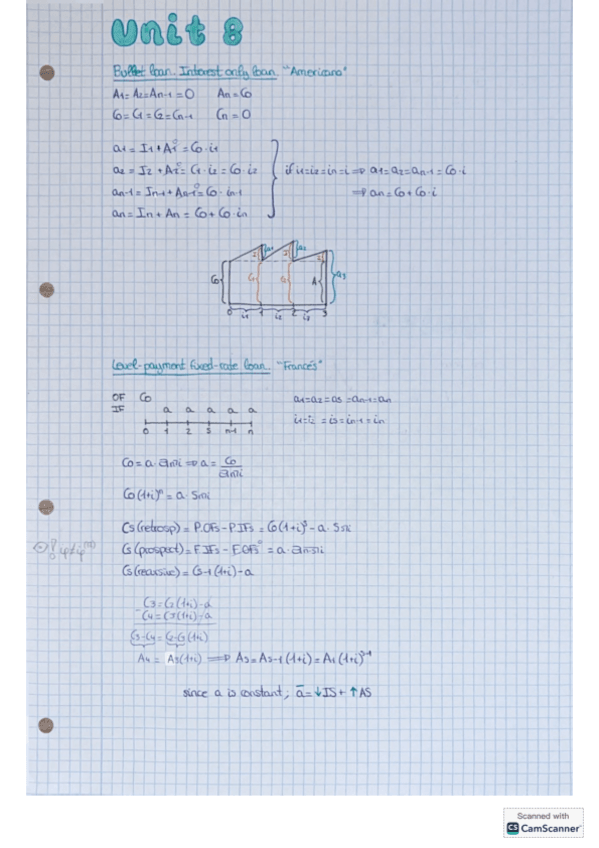 Unit 8
Bullet loan. Interest only loan. "Americano"
A1=A2=An-1=0   An=C0
C0=C1=C2=Cn-1   Cn=0
a1=I1+A1⁰=C0·i1
a2=I2+A2⁰=C1·i2=C0·i2   if i1=i2=in=i ⇒ a1=a2=an-1=C0·i
an-1=In-1+An-1⁰=C0·in-1   ⇒ an=C0+C0·i
an=In+An=C0+C0·in
C0 C1 C2 A3 a3
0 1 2 3
i1 i2 i3
Level-payment fixed-rate loan. "Francés"
OF C0   a1=a2=a3=an-1=an
IF a a a a a   i1=i2=i3=in-1=in
0 1 2 3 n-1 n
C0=a·an┐i ⇒ a=C0/an┐i
C0(1+i)ⁿ=a·Sn┐i
Cs(retrosp)=P.OFs-P.IFs=C0(1+i)ˢ-a·Ss┐i
Cs(prospect)=F.IFs-F.OFs⁰=a·an-s┐i
Cs(recursive)=Cs-1(1+i)-a
C3=C2(1+i)-a
-C4=C3(1+i)-a
C3-C4=C2-C3(1+i)
A4=A3(1+i) ⇒ As=As-1(1+i)=A1(1+i)ˢ⁻¹
since a is constant; ā=↓IS+↑AS
Scanned with
CS CamScanner